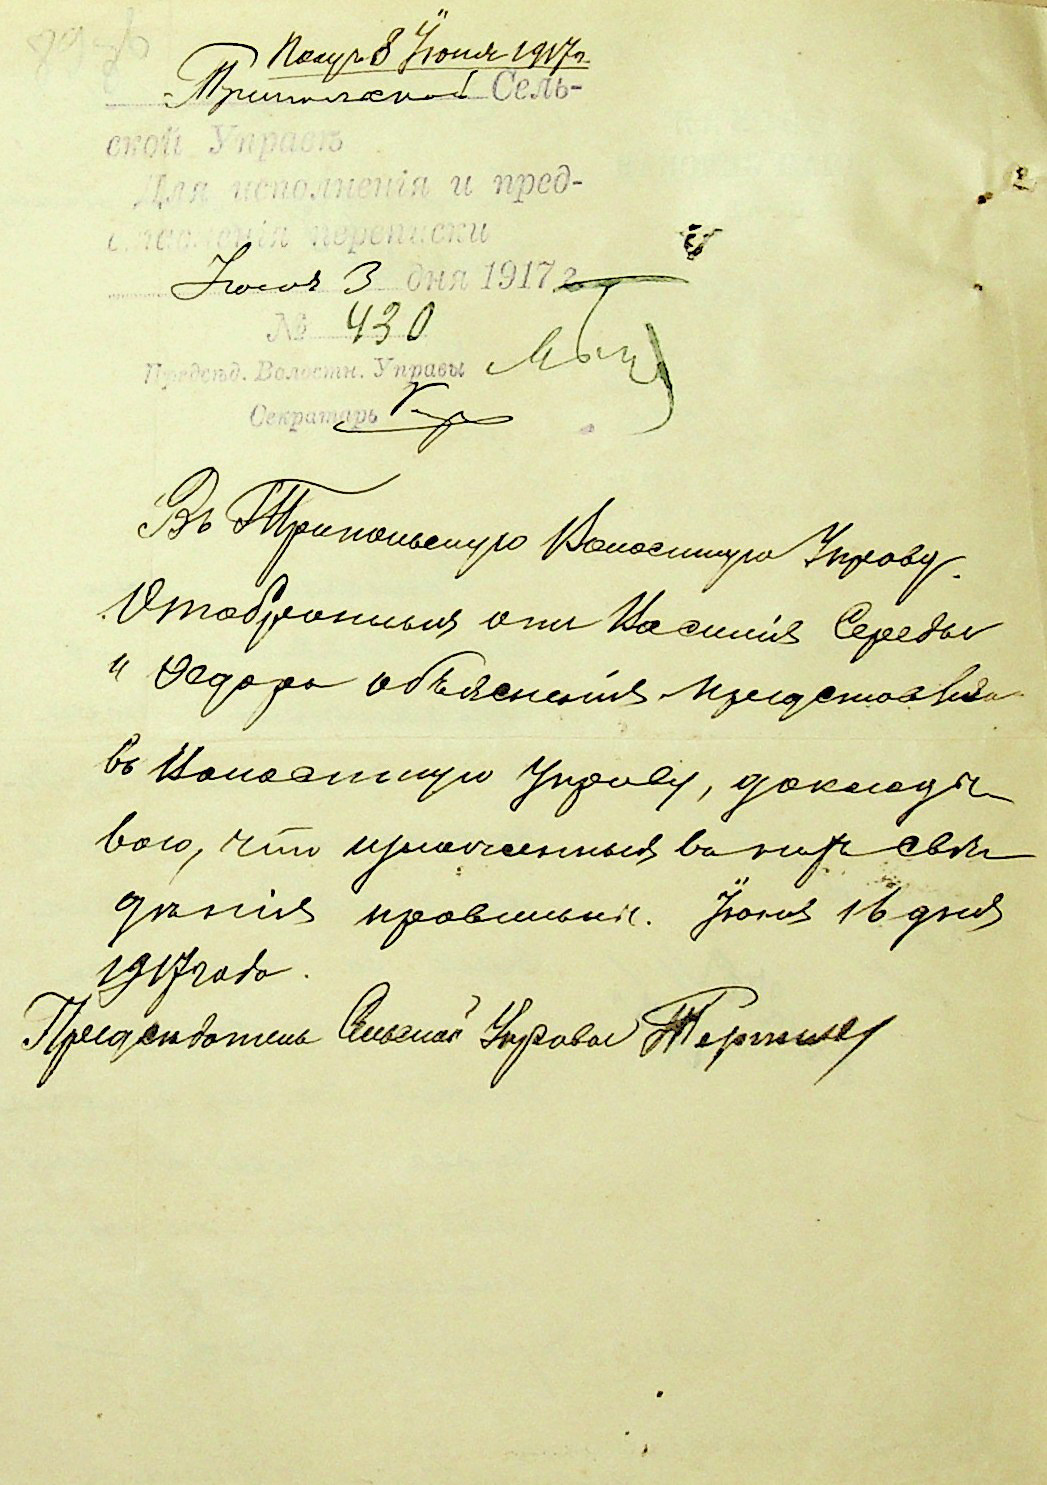 Получ 8 Июня 1917 г.
Трипольской Сель-
ской Управѣ
Для исполненія и пред-
ставленія переписки
Июня 3 дня 1917 г.
№ 430
Предсѣд. Волостн. Управы
Секретарь
Въ Трипольскую Волостную Управу.
Отобранныя отъ Василія Середы
и Федора объясненія представляя
въ Волостную Управу, доклады
ваю, что изложенныя въ нихъ свѣ
дѣнія правильны. Июня 16 дня
1917 года.
Предсѣдатель Сельской Управы